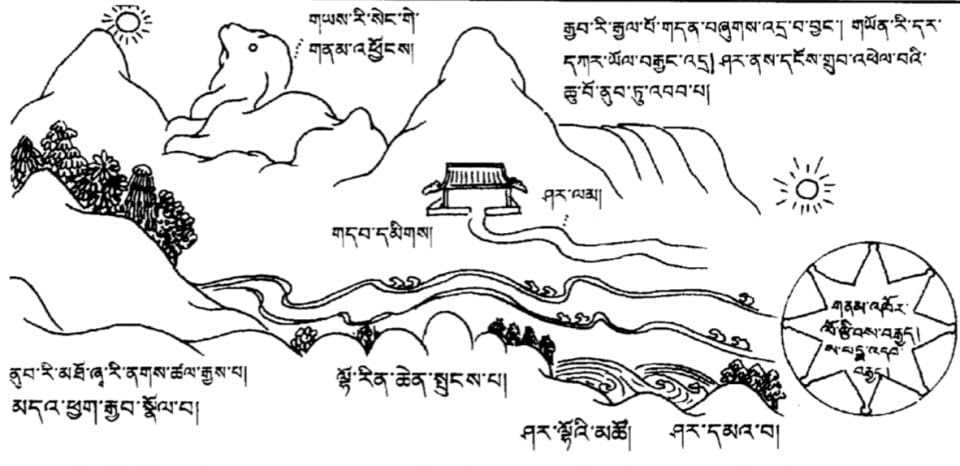 གཡས་རི་སེང་གེ་
གནམ་འཕྱོངས།
རྒྱབ་རི་རྒྱལ་པོ་གདན་བཞུགས་འདྲ་བ་བྱང་། གཡོན་རི་དར་
དཀར་ཡོལ་བརྒྱང་འདྲ། ཤར་ནས་དངོས་གྲུབ་འཕེལ་བའི་
ཆུ་བོ་ནུབ་ཏུ་འབབ་པ།
ཤར་ལམ།
གདབ་དམིགས།
གནམ་འཁོར་
ས་པདྨ་འདབ་
བརྒྱད།
ནུབ་རི་མཐོ་ཞྭ་རི་ནགས་ཚལ་རྒྱས་པ།
མདའ་ཕྱག་རྒྱབ་སྣོལ་བ།
ལྷོ་རིན་ཆེན་སྤུངས་པ།
ཤར་ལྷོའི་མཚོ།
ཤར་དམའ་བ།